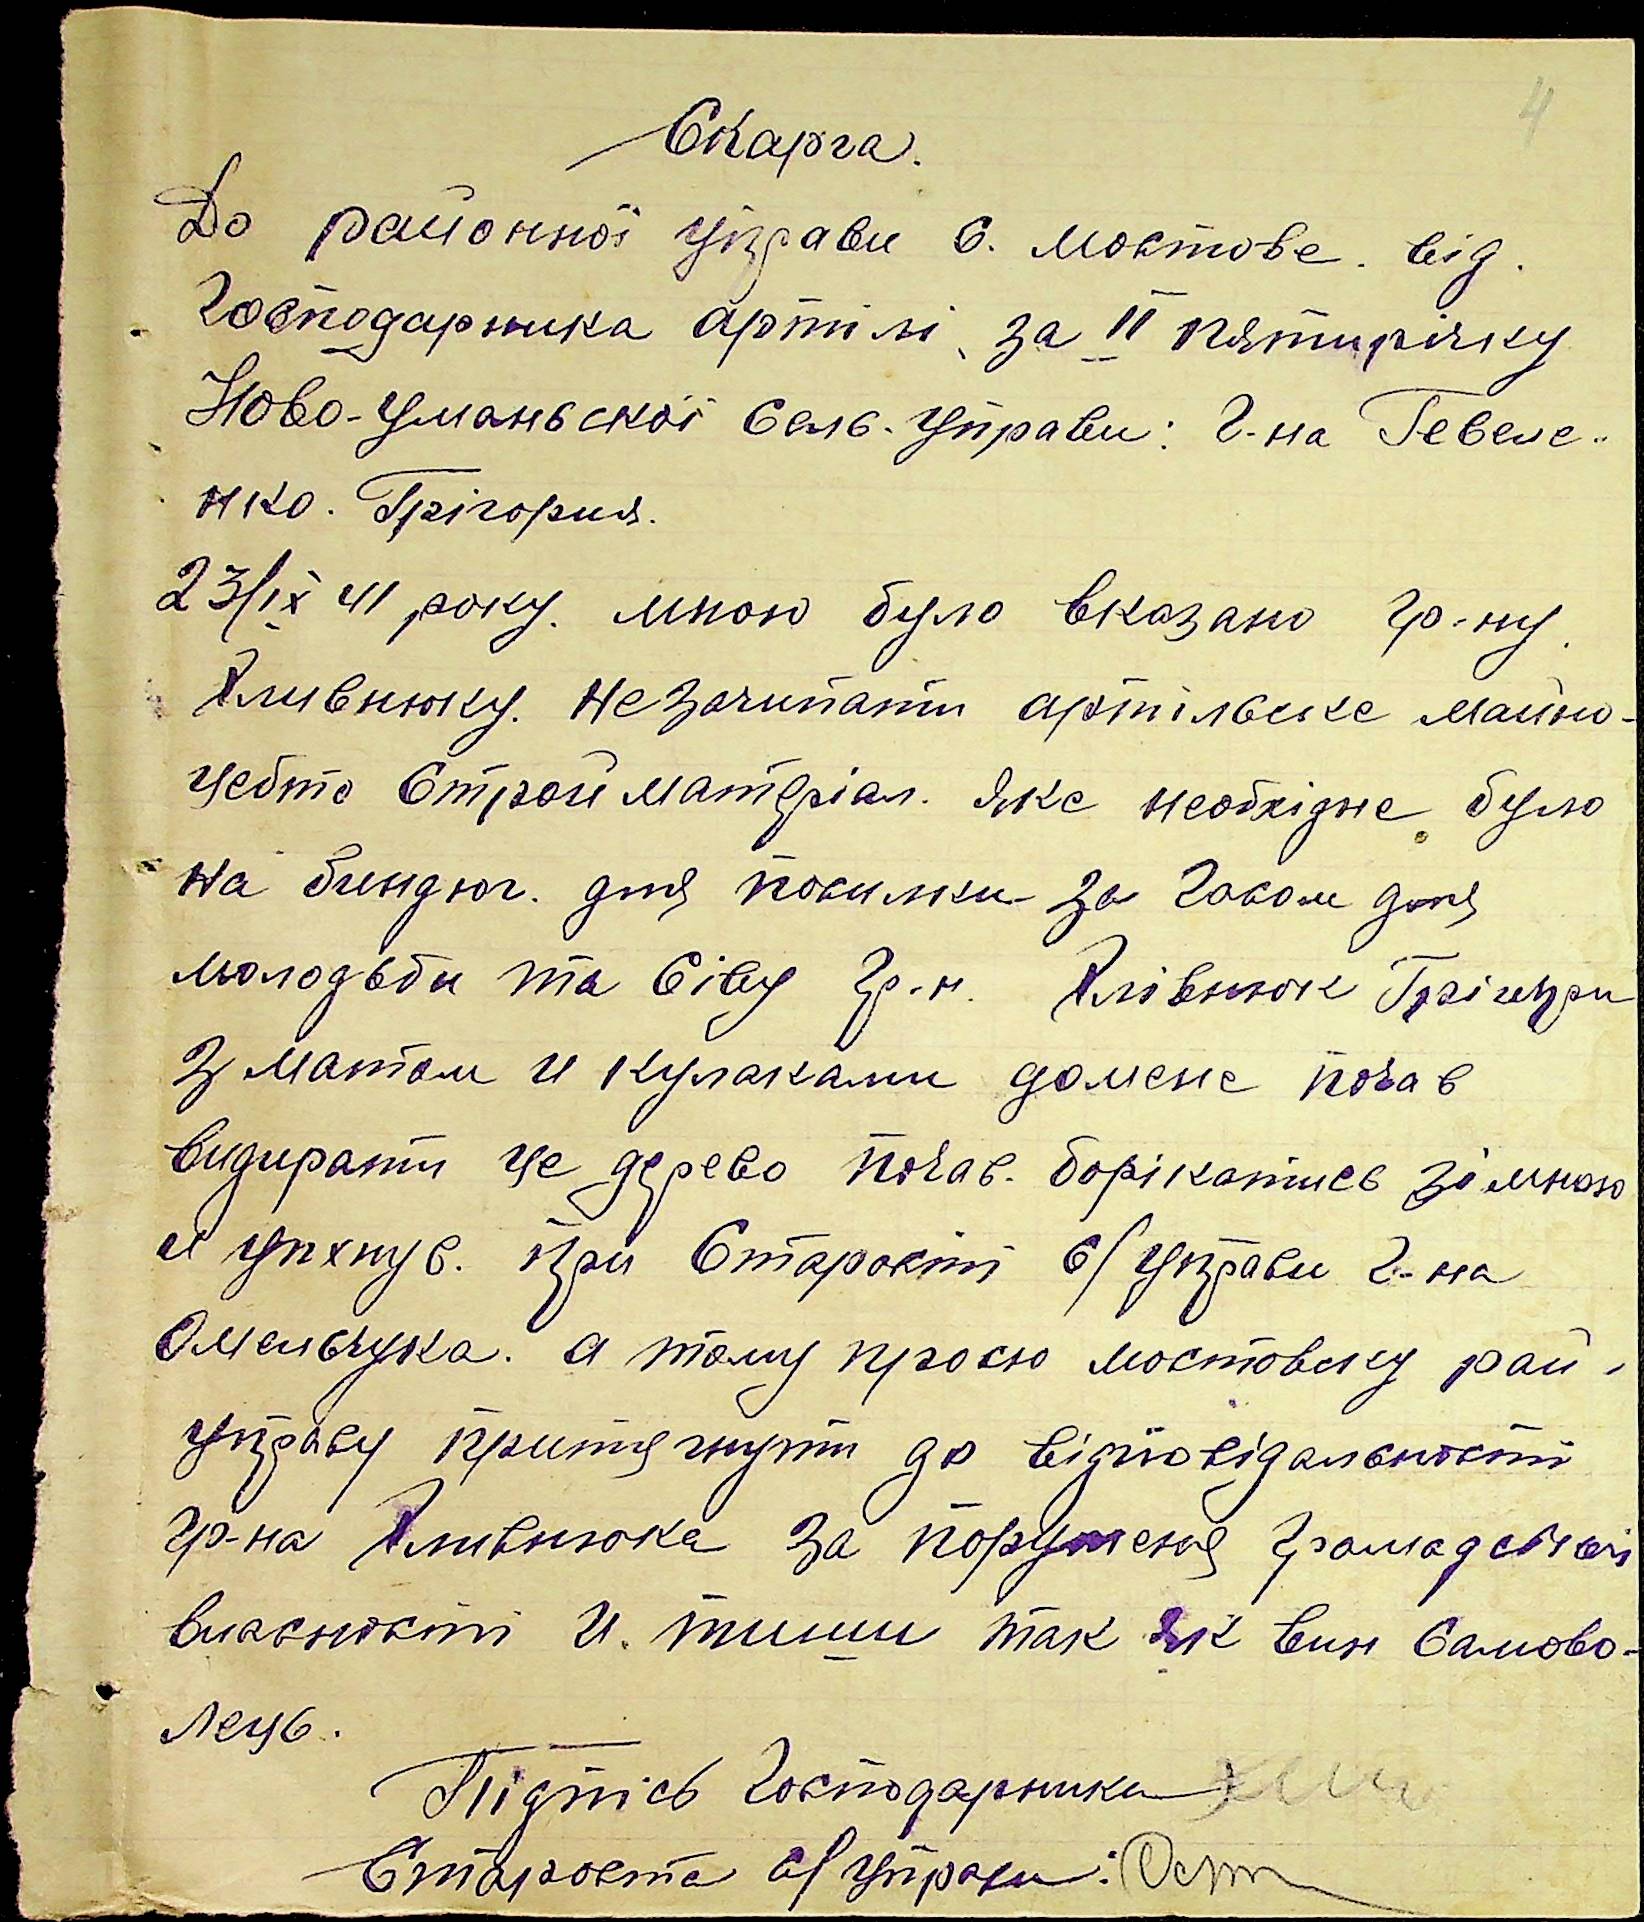 4
Скарга.
До районної управи с. мостове. від.
Господарника артілі за II пятирічку
Ново-Уманьскої Сель. Управи: г-на Гевеле-
нко. Грігория.
23/ІХ 41 року. мною було вказано гр-ну
Хливнюку. незачипати артільське майно-
цебто Строй матеріал. яке необхідне було
на биндюг. для посилки за гасом для
молодьби та сіву гр-н. Хлівнюк Грігори
з матом и кулаками домене почав
видирати це дерево почав. борікатись зімною
и упхнув. при Старості с/управи г-на
Омельчука. а тому просю мостовску рай.
управу притягнути до відповідальности
гр-на Хливнюка за порушеня громадської
власности и. тиши так як вин самово-
лець.
Підпісь Господарника
Староста с/управи: